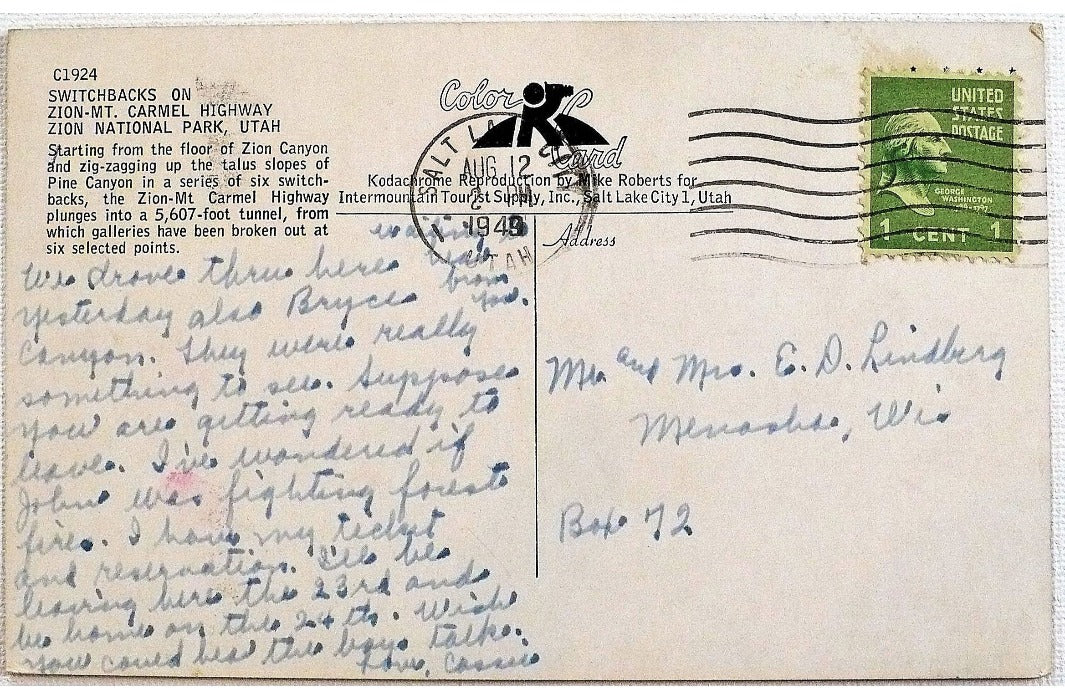 C1924
SWITCHBACKS ON
ZION-MT. CARMEL HIGHWAY
ZION NATIONAL PARK, UTAH
Starting from the floor of Zion Canyon
and zig-zagging up the talus slopes of
Pine Canyon in a series of six switch-
backs, the Zion-Mt Carmel Highway
plunges into a 5,607-foot tunnel, from
which galleries have been broken out at
six selected points.
Color Card
Kodachrome Reproduction by Mike Roberts for
Intermountain Tourist Supply, Inc., Salt Lake City 1, Utah
SALT LAKE CITY
AUG 12
PM
1949
UTAH
UNITED
STATES
POSTAGE
GEORGE
WASHINGTON
1 CENT 1
Address
waiting to
hear
from
you.
We drove thru here
yesterday also Bryce
Canyon. They were really
something to see. Suppose
you are getting ready to
leave. I've wondered if
John was fighting forest
fires. I have my ticket
and reservation. I'll be
leaving here the 23rd and
be home on the 24th. Wish
you could hear the boys talk.
Love, Cassie
Mr. and Mrs. E. D. Lindberg
Menasha, Wis
Box 72